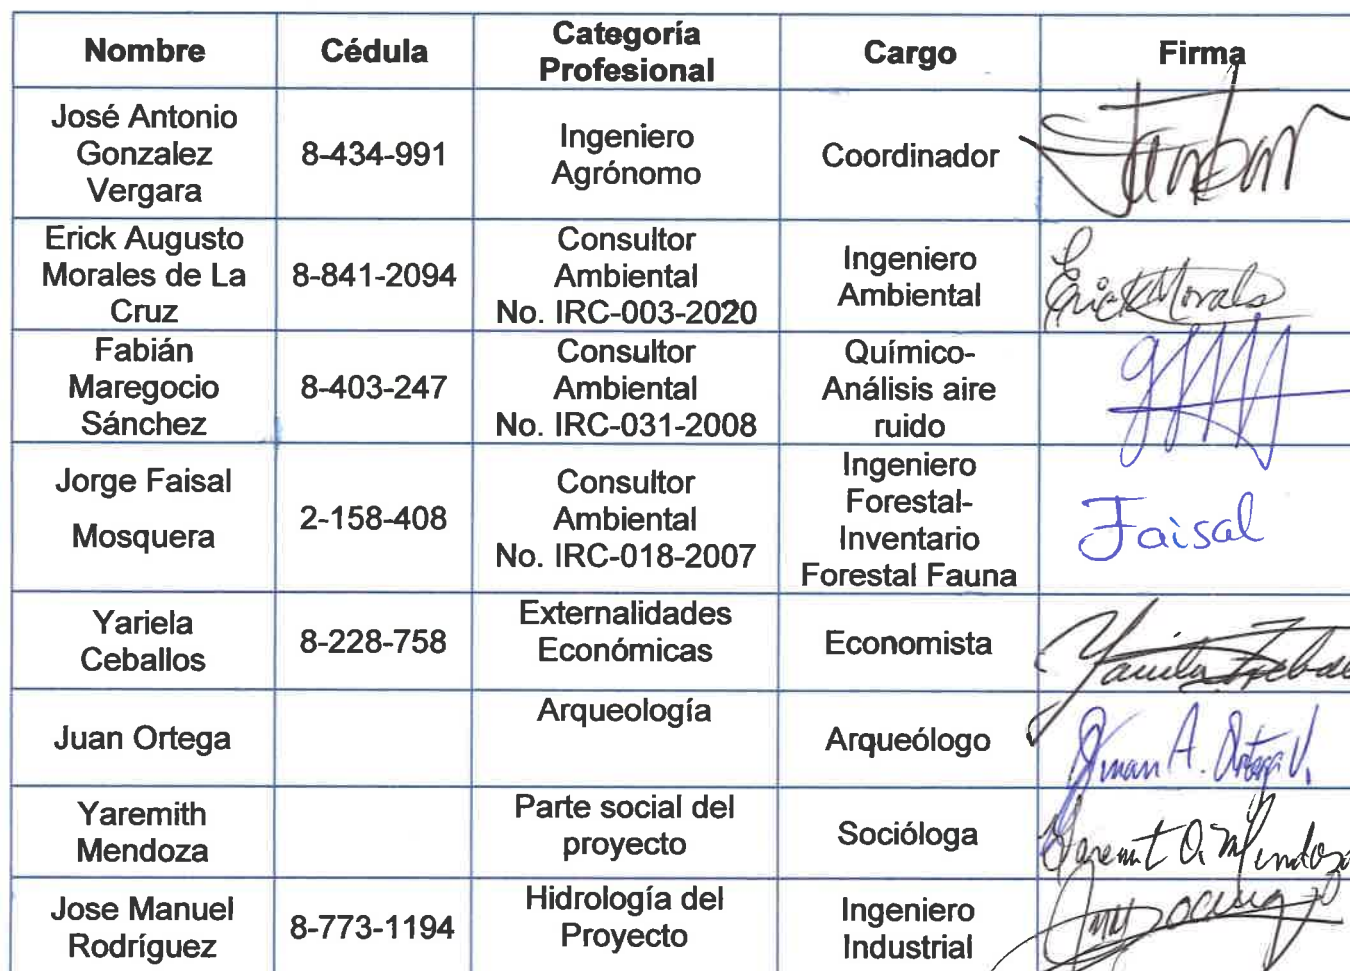 Nombre
Cédula
Categoría
Profesional
Cargo
Firma
José Antonio
Gonzalez
Vergara
8-434-991
Ingeniero
Agrónomo
Coordinador
Erick Augusto
Morales de La
Cruz
8-841-2094
Consultor
Ambiental
No. IRC-003-2020
Ingeniero
Ambiental
Erick Morales
Fabián
Maregocio
Sánchez
8-403-247
Consultor
Ambiental
No. IRC-031-2008
Químico-
Análisis aire
ruido
Jorge Faisal
Mosquera
2-158-408
Consultor
Ambiental
No. IRC-018-2007
Ingeniero
Forestal-
Inventario
Forestal Fauna
Faisal
Yariela
Ceballos
8-228-758
Externalidades
Económicas
Economista
Juan Ortega
Arqueología
Arqueólogo
Juan A. Ortega V.
Yaremith
Mendoza
Parte social del
proyecto
Socióloga
Yaremit O. Mendoza
Jose Manuel
Rodríguez
8-773-1194
Hidrología del
Proyecto
Ingeniero
Industrial